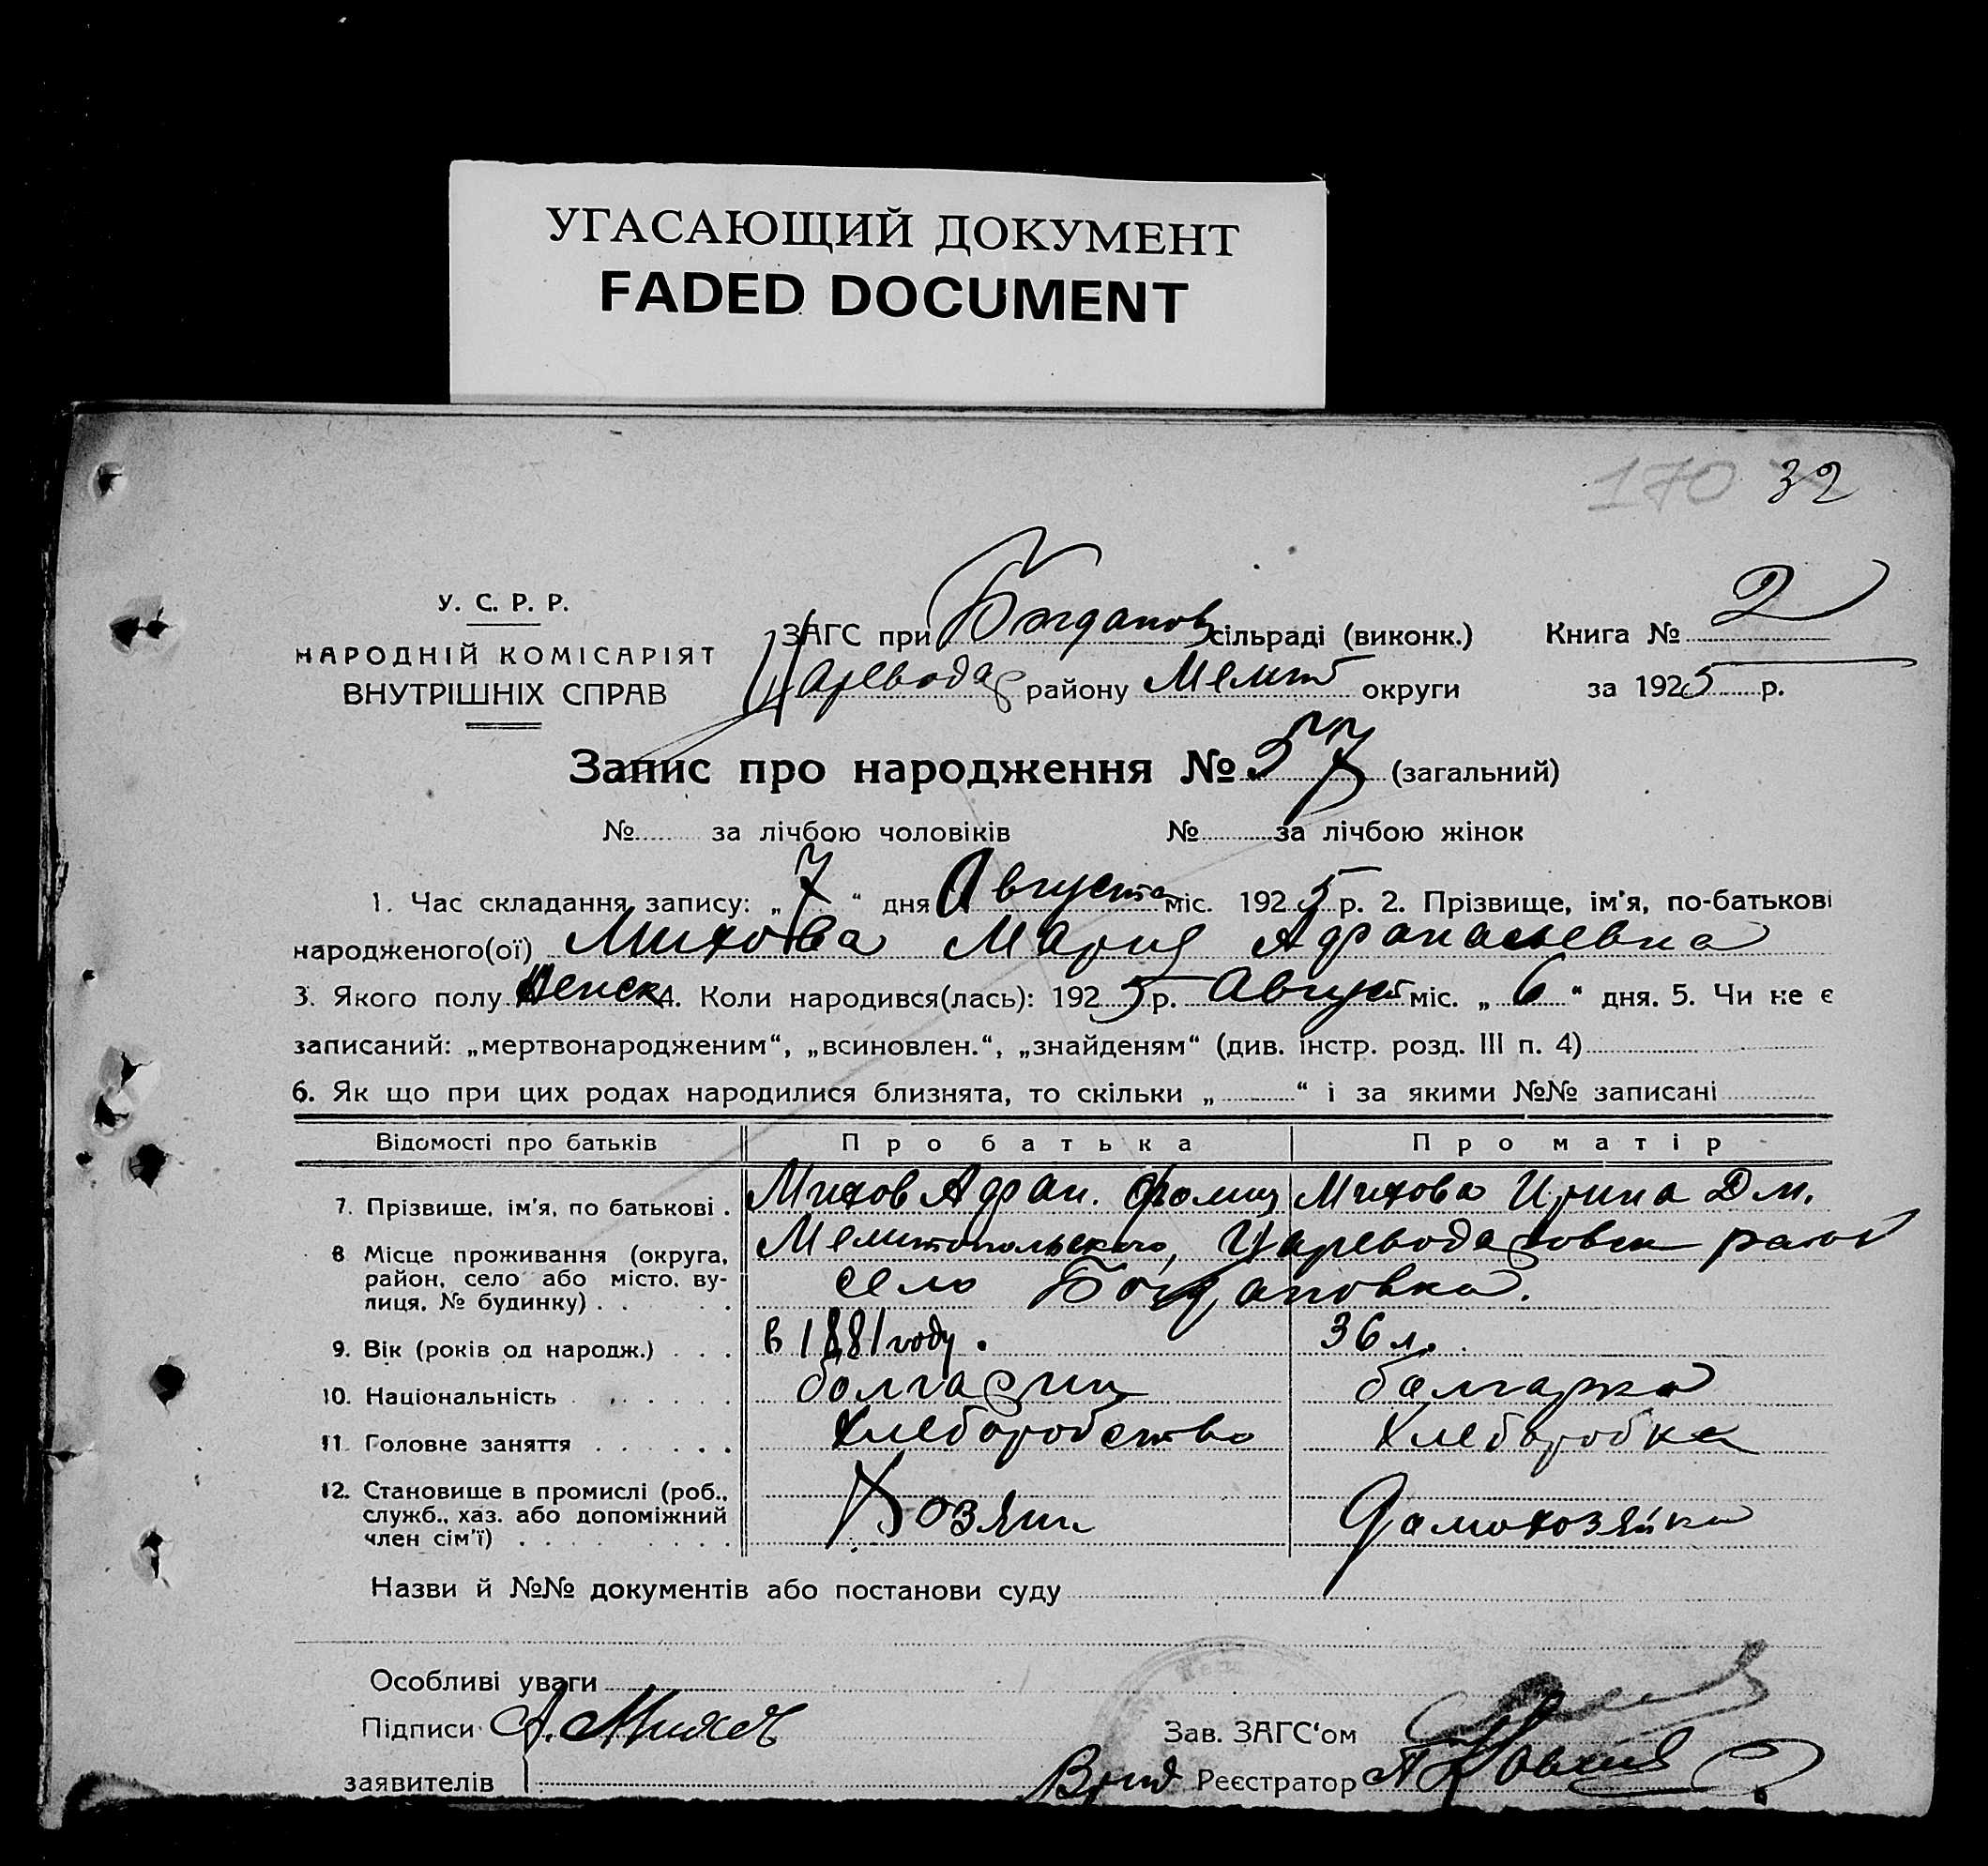 УГАСАЮЩИЙ ДОКУМЕНТ
FADED DOCUMENT
170 32
У. С. Р. Р.
НАРОДНІЙ КОМІСАРІЯТ
ВНУТРІШНІХ СПРАВ
ЗАГС при Богданов сільраді (виконк.) Книга № 2
Царевода району Мелит округи за 1925 р.
Запис про народження № 57 (загальний)
№ за лічбою чоловіків № за лічбою жінок
1. Час складання запису: „7“ дня Августа міс. 1925 р. 2. Прізвище, ім'я, по-батькові
народженого(ої) Михова Мария Афанасьевна
3. Якого полу Женск 4. Коли народився(лась): 1925 р. Август міс. „6“ дня. 5. Чи не є
записаний: „мертвонародженим“, „всиновлен.“, „знайденям“ (див. інстр. розд. III п. 4)
6. Як що при цих родах народилися близнята, то скільки „ “ і за якими №№ записані
Відомості про батьків Про батька Про матір
7. Прізвище, ім'я, по батькові . Михов Афан. Фомич Михова Ирина Дм.
8 Місце проживання (округа, Мелитопольского, Цареводаровск район
район, село або місто, ву-
лиця, № будинку) . . . . село Богдановка.
9. Вік (років од народж.) . . . в 1881 году. 36 л.
10. Національність . . . . . . болгарин болгарка
11. Головне заняття . . . . . . Хлеборобство Хлеборобка
12. Становище в промислі (роб.,
служб., хаз. або допоміжний Хозяин Домохозяйка
член сім'ї) . . . . . . . .
Назви й №№ документів або постанови суду
Особливі уваги
Підписи А. Михов Зав. ЗАГС‘ом
заявителів Врид Реєстратор